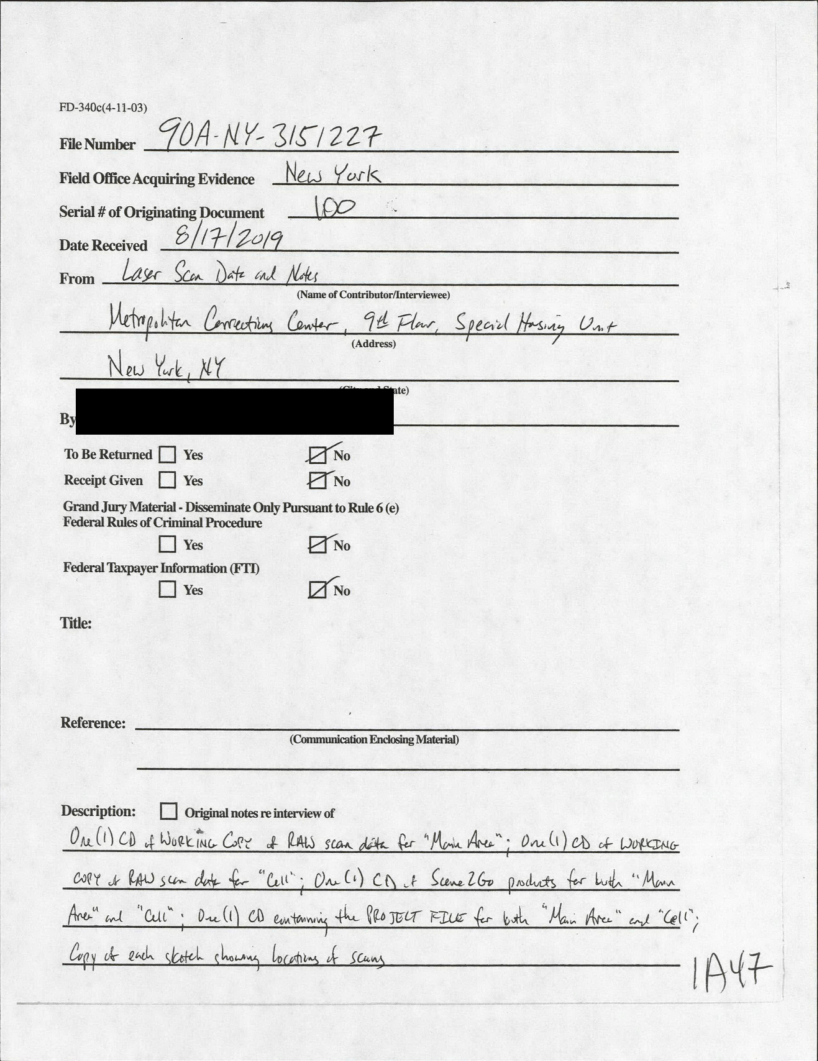 FD-340c(4-11-03)
File Number 90A-NY-3151227
Field Office Acquiring Evidence New York
Serial # of Originating Document 100
Date Received 8/17/2019
From Laser Scan Data and Notes
(Name of Contributor/Interviewee)
Metropolitan Corrections Center, 9th Floor, Special Housing Unit
(Address)
New York, NY
(City and State)
By
To Be Returned Yes No
Receipt Given Yes No
Grand Jury Material - Disseminate Only Pursuant to Rule 6 (e)
Federal Rules of Criminal Procedure
Yes No
Federal Taxpayer Information (FTI)
Yes No
Title:
Reference:
(Communication Enclosing Material)
Description: Original notes re interview of
One (1) CD of WORKING COPY of RAW scan data for "Main Area"; One (1) CD of WORKING
COPY of RAW scan data for "Cell"; One (1) CD of Scene2Go products for both "Main
Area" and "Cell"; One (1) CD containing the PROJECT FILE for both "Main Area" and "Cell";
Copy of each sketch showing locations of scans
1A47